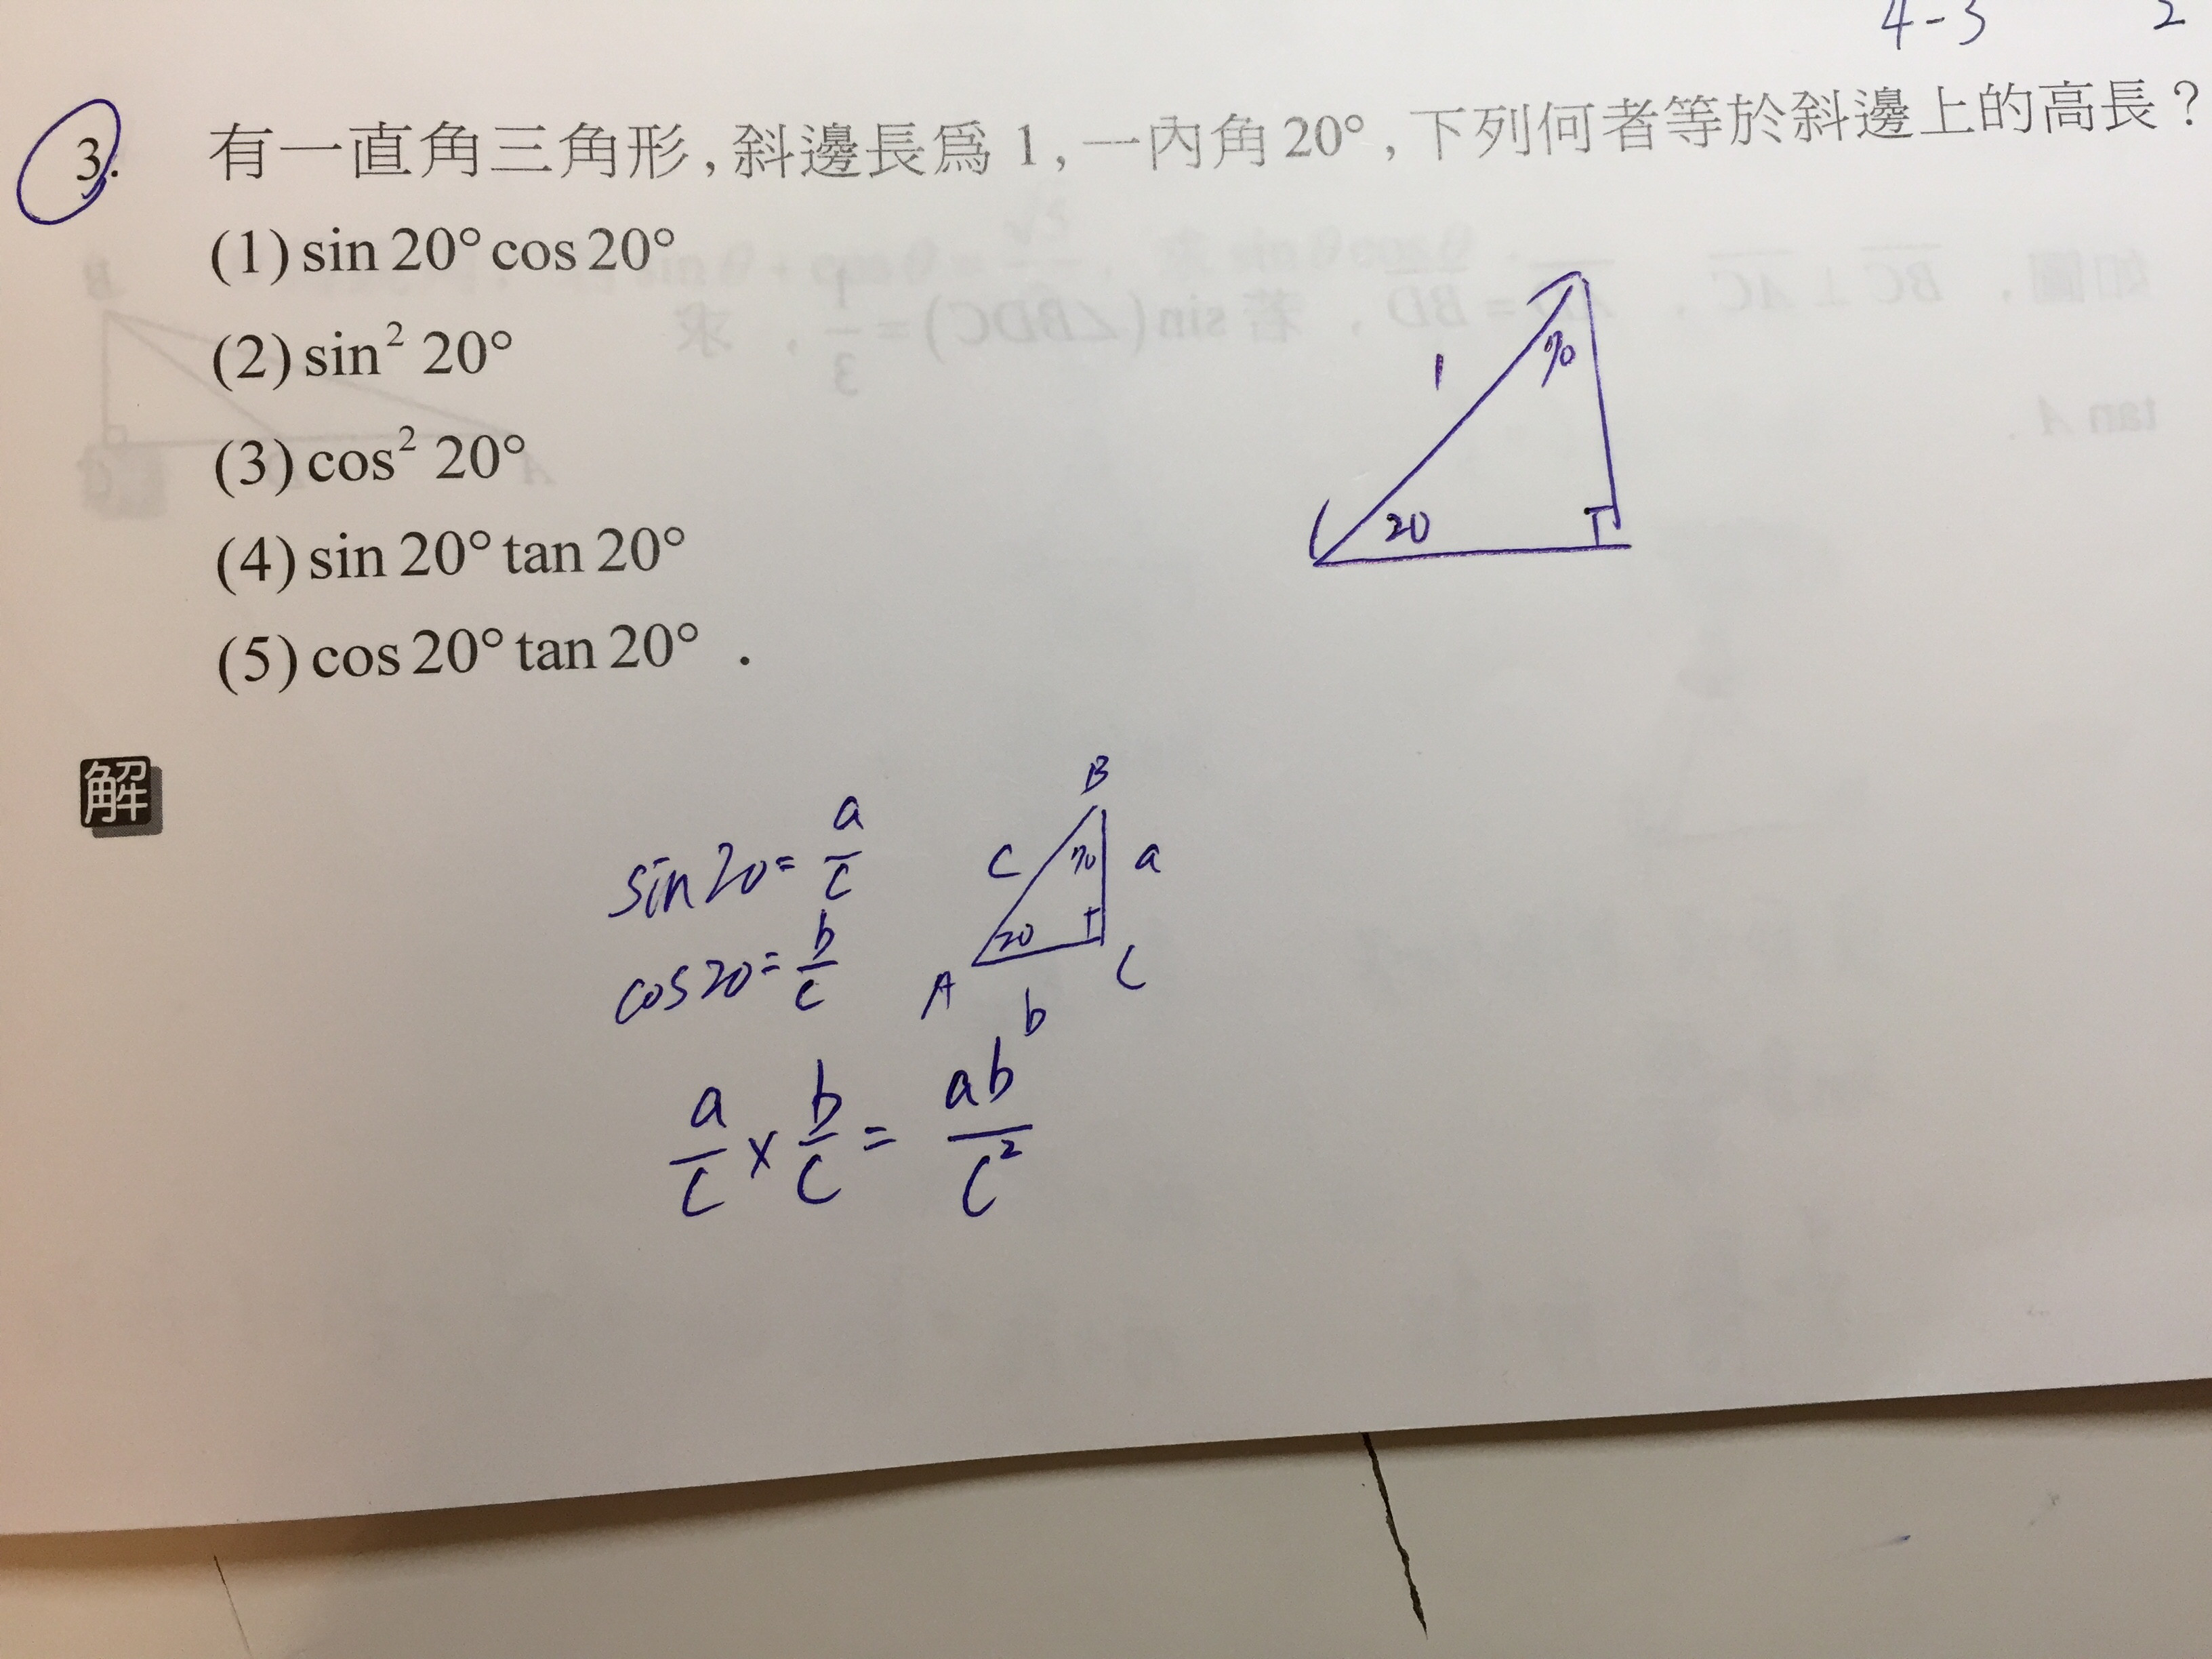 4-3 2
3. 有一直角三角形,斜邊長爲 1,一內角 20°,下列何者等於斜邊上的高長?
(1) sin 20° cos 20°
(2) sin² 20°
(3) cos² 20°
(4) sin 20° tan 20°
(5) cos 20° tan 20° .
1
70
20
解
sin20= a/c
cos20= b/c
B
c
70
a
20
A
C
b
a/c × b/c = ab/c²